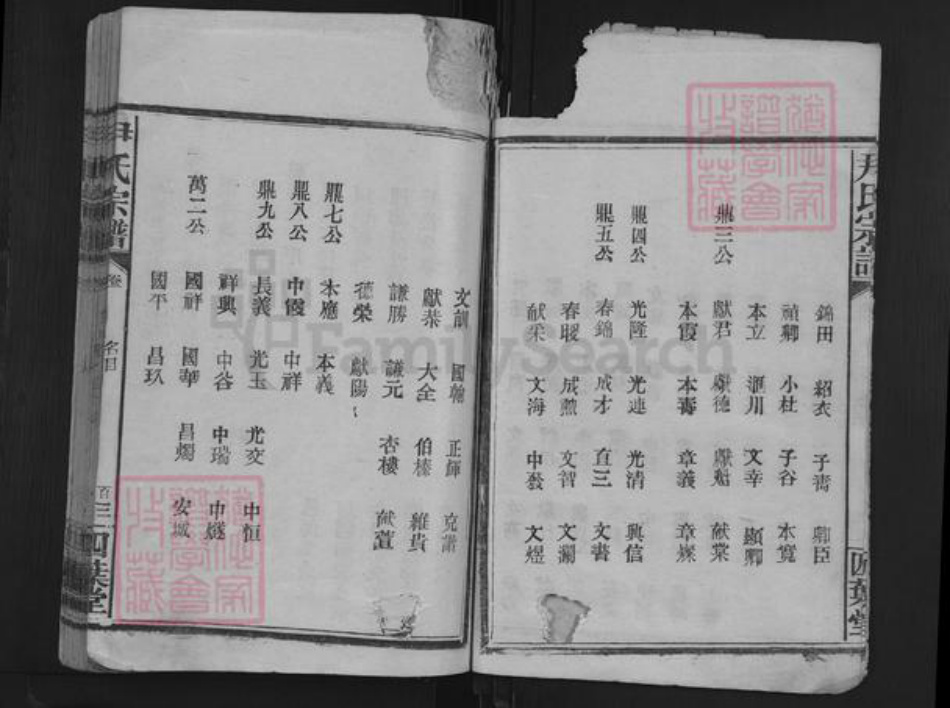 尹氏宗譜
四葉堂
錦田 紹衣 子青 卿臣
禎卿 小杜 子谷 本寬
本立 滙川 文幸 顯卿
鼎三公 獻君 獻德 獻魁 献棠
本霞 本壽 章義 章燦
鼎四公 光隆 光連 光清 興信
鼎五公 春錦 成才 直三 文書
春暖 成勲 文智 文瀾
献采 文海 中發 文煜
文訓 國翰 正輝 克諧
獻恭 大全 伯榛 維貴
謙勝 謙元 杏樓 献萱
德榮 獻陽
鼎七公 本應 本義
鼎八公 中霞 中祥
鼎九公 長義 光玉 光交 中恒
祥興 中谷 中瑞 中燧
萬二公 國祥 國華 昌燭 安城
國平 昌玖
尹氏宗譜
卷
名目
百三
四葉堂
FamilySearch